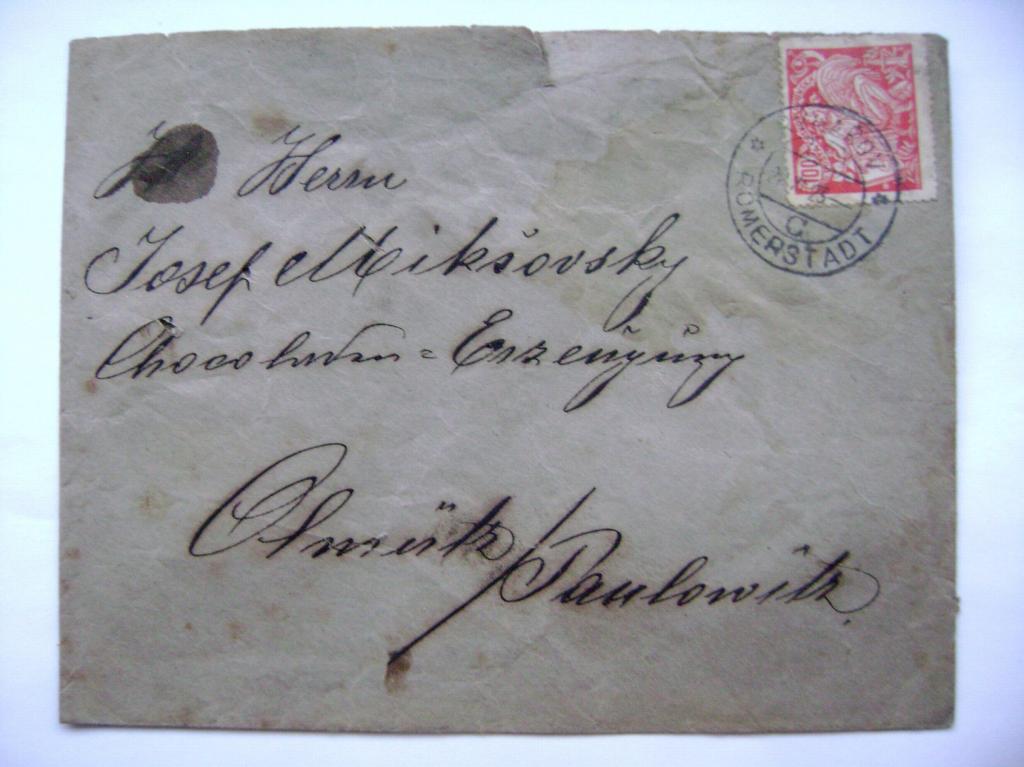 Herrn
Josef Mikšovsky
Chocoladen = Erzeugung
Olmütz / Paulowitz
100
RÝMAŘOV
C
RÖMERSTADT